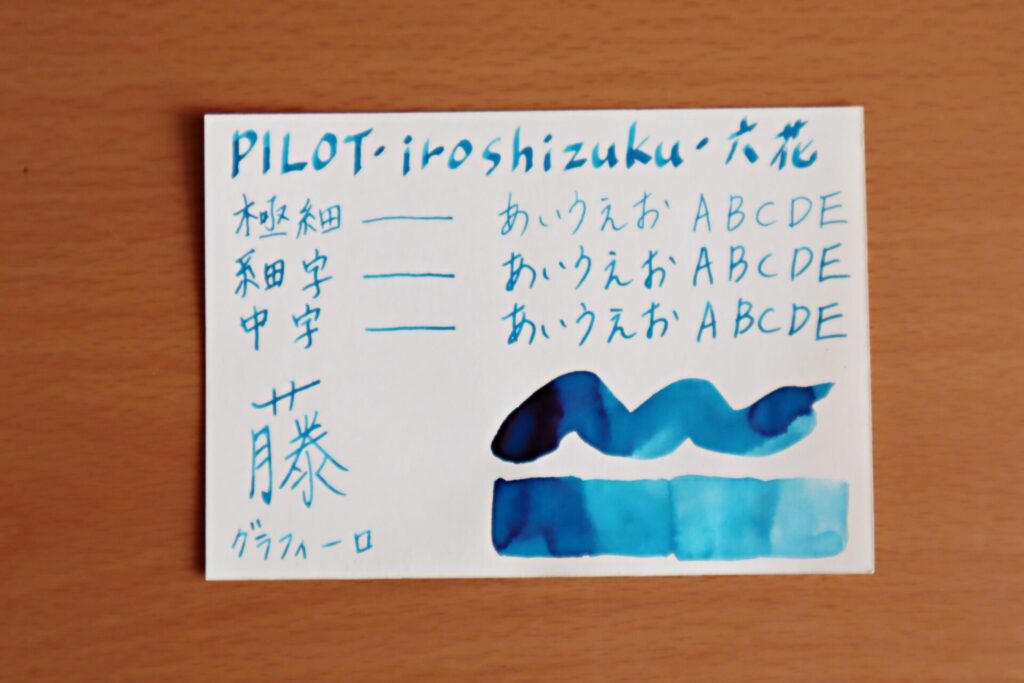 PILOT・iroshizuku・六花
極細 あいうえお ABCDE
細字 あいうえお ABCDE
中字 あいうえお ABCDE
藤
グラフィーロ